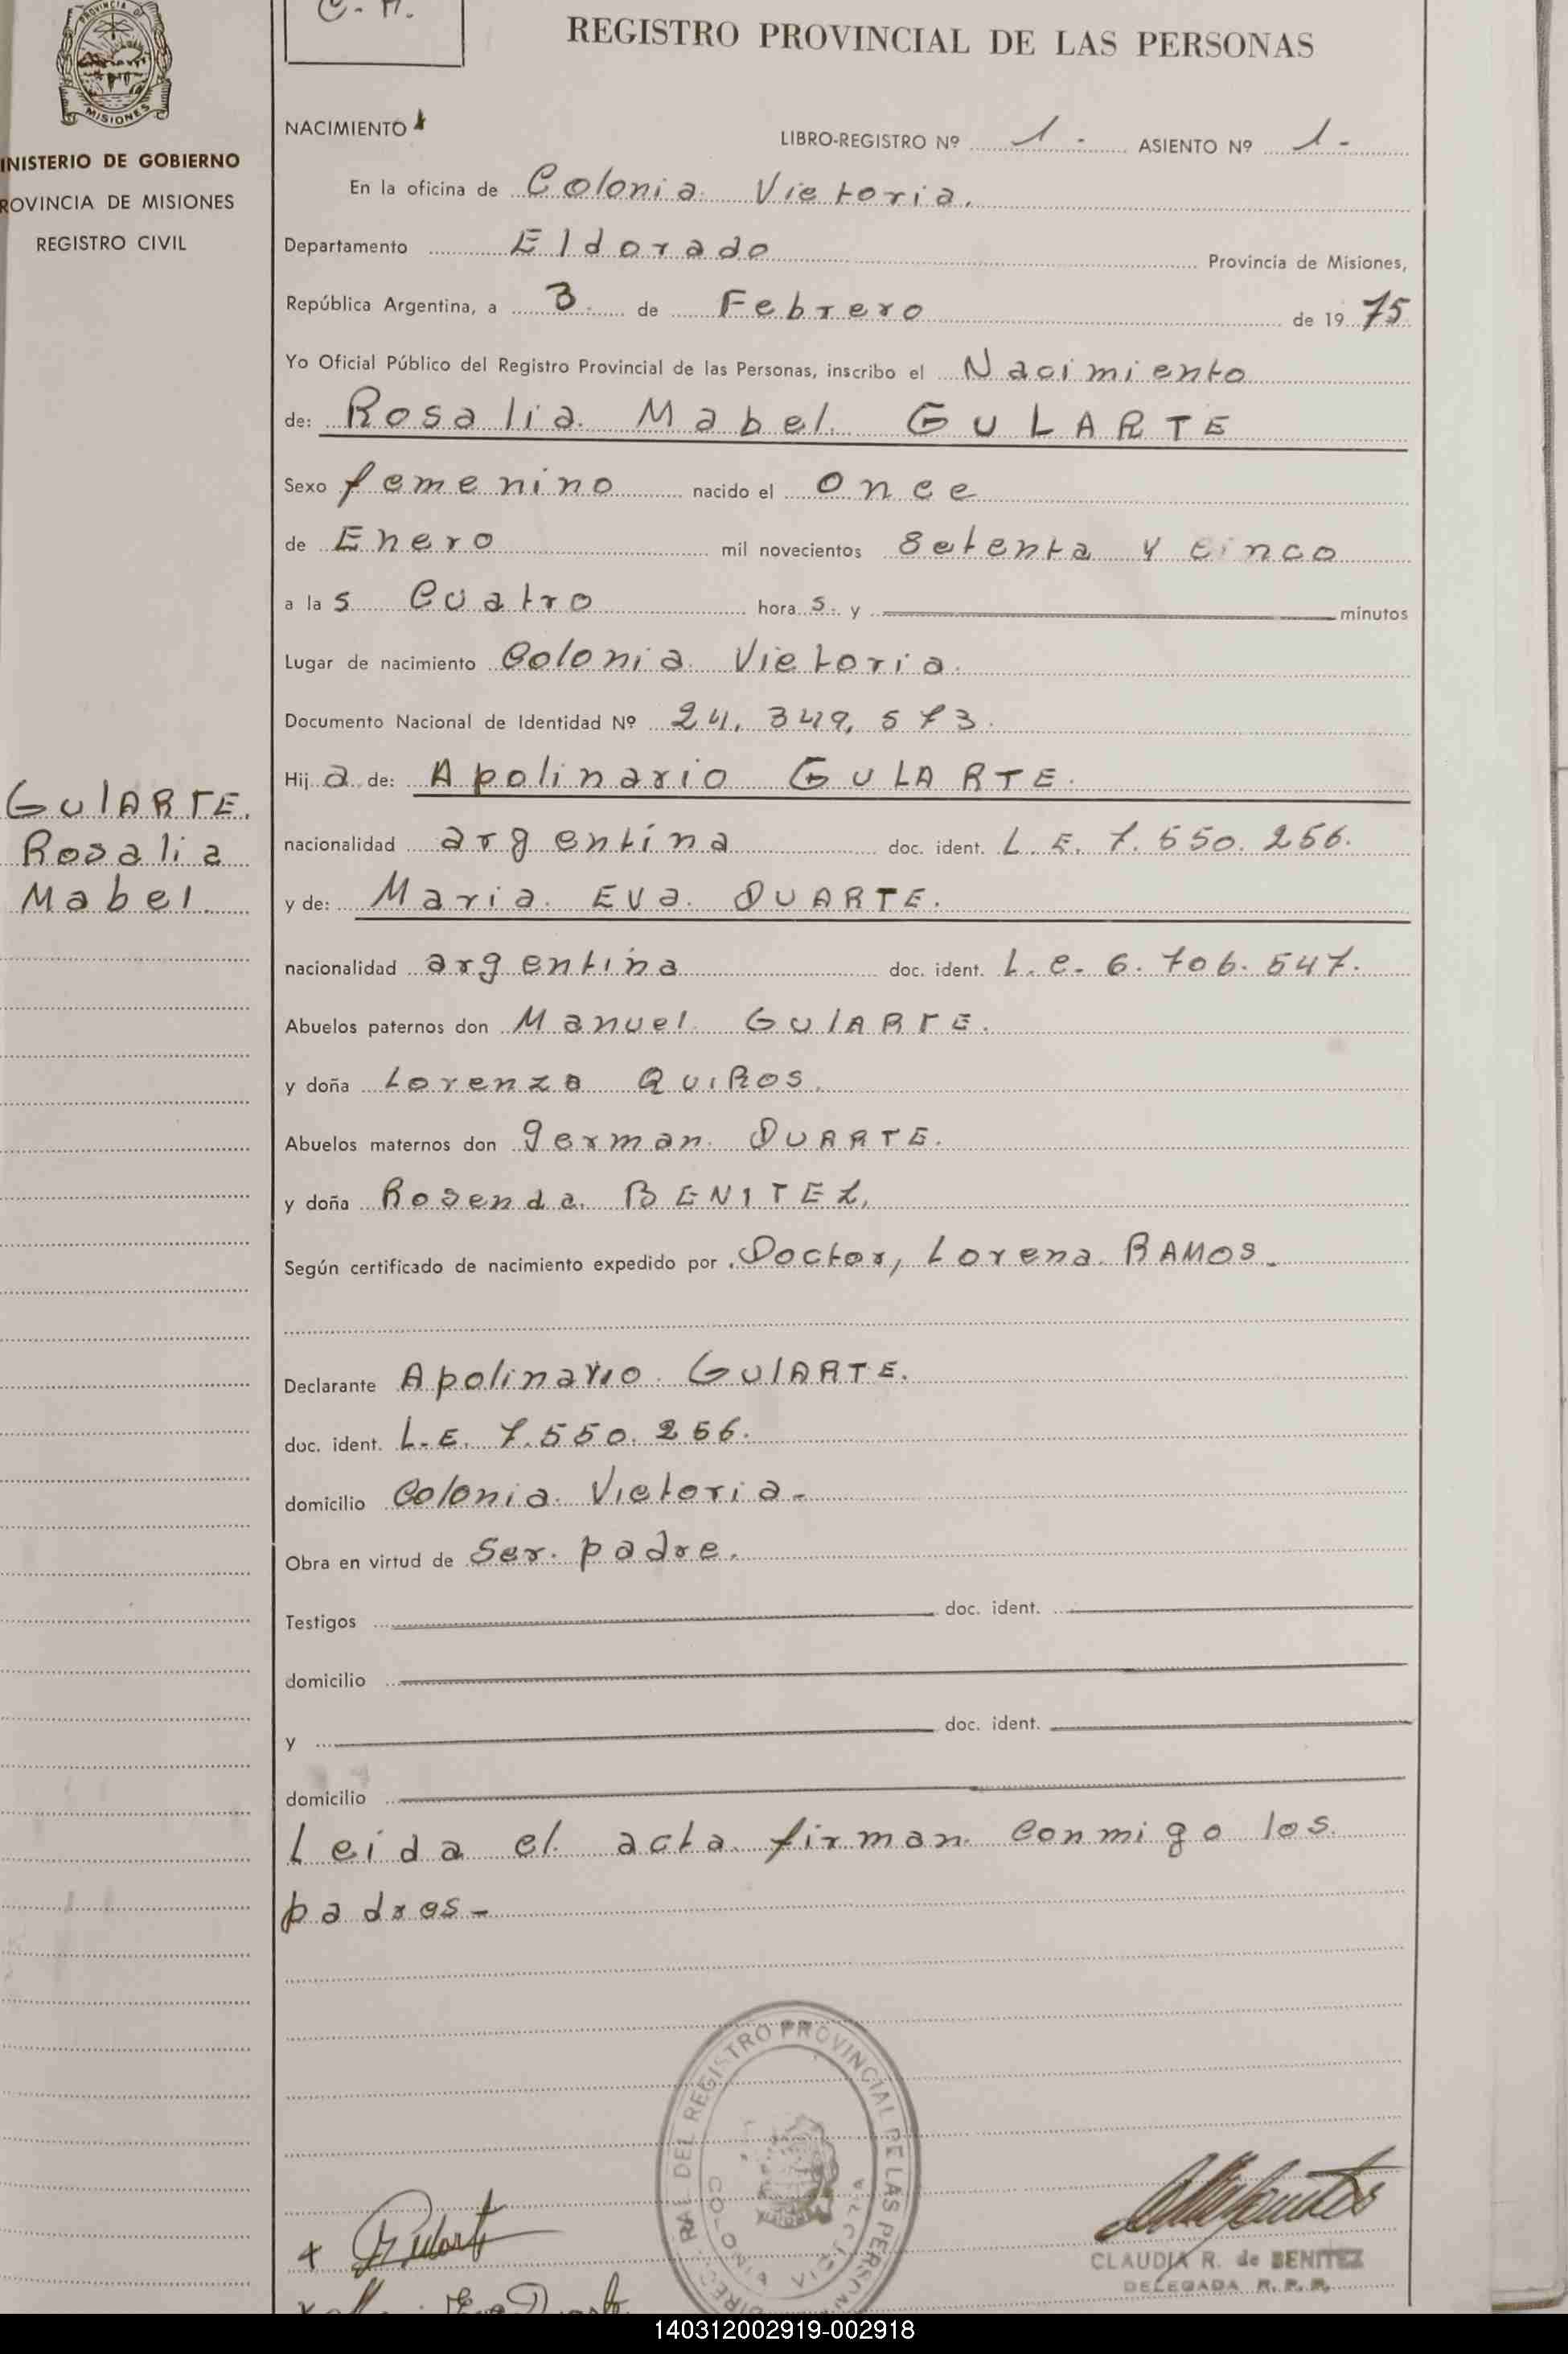 C. M.
REGISTRO PROVINCIAL DE LAS PERSONAS
PROVINCIA D
MISIONES
INISTERIO DE GOBIERNO
ROVINCIA DE MISIONES
REGISTRO CIVIL
NACIMIENTO
LIBRO-REGISTRO Nº 1 - ASIENTO Nº 1 -
En la oficina de Colonia Victoria.
Departamento Eldorado Provincia de Misiones,
República Argentina, a 3 de Febrero de 19 75
Yo Oficial Público del Registro Provincial de las Personas, inscribo el Nacimiento
de: Rosalia Mabel GULARTE
Sexo femenino nacido el once
de Enero mil novecientos setenta y cinco
a las cuatro horas y minutos
Lugar de nacimiento Colonia Victoria.
Documento Nacional de Identidad Nº 24.349.573.
Hija de: Apolinario GULARTE.
nacionalidad argentina doc. ident. L.E. 7.550.256.
y de: Maria Eva DUARTE.
nacionalidad argentina doc. ident. L.e. 6.706.547.
Abuelos paternos don Manuel GULARTE.
y doña Lorenza QUIROS.
Abuelos maternos don german DUARTE.
y doña Rosenda BENITEZ,
Según certificado de nacimiento expedido por Doctor, Lorena RAMOS.
Declarante Apolinario GULARTE.
doc. ident. L.E. 7.550.256.
domicilio Colonia Victoria -
Obra en virtud de Ser padre.
Testigos doc. ident.
domicilio
y doc. ident.
domicilio
Leida el acta firman conmigo los
padres -
GULARTE.
Rosalia
Mabel
REGISTRO PROVINCIAL DE LAS PERSON
COLONIA VICTORIA
CLAUDIA R. de BENITEZ
DELEGADA R. P. P.
140312002919-002918